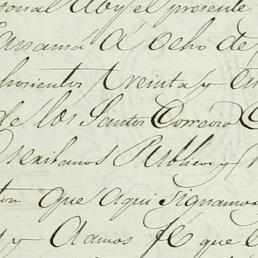 sonal Aby el presente
Cansama á ocho de
chosientos treinta y
de los Santos Correoso
Escribanos Publicos y
que aqui signamos
y damos fé que